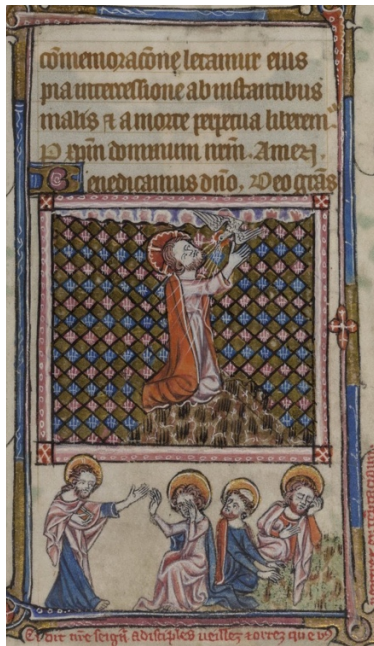 cōmemoracōne letamur eius
pia intercessione ab instantibus
malis ⁊ a morte perpetua liberem
P xp̄m dominum nrm̄. Amen.
Benedicamus dn̄o, Deo grās
Et dit n̄re seign̄ a disciples ueillez ⁊ orrez que